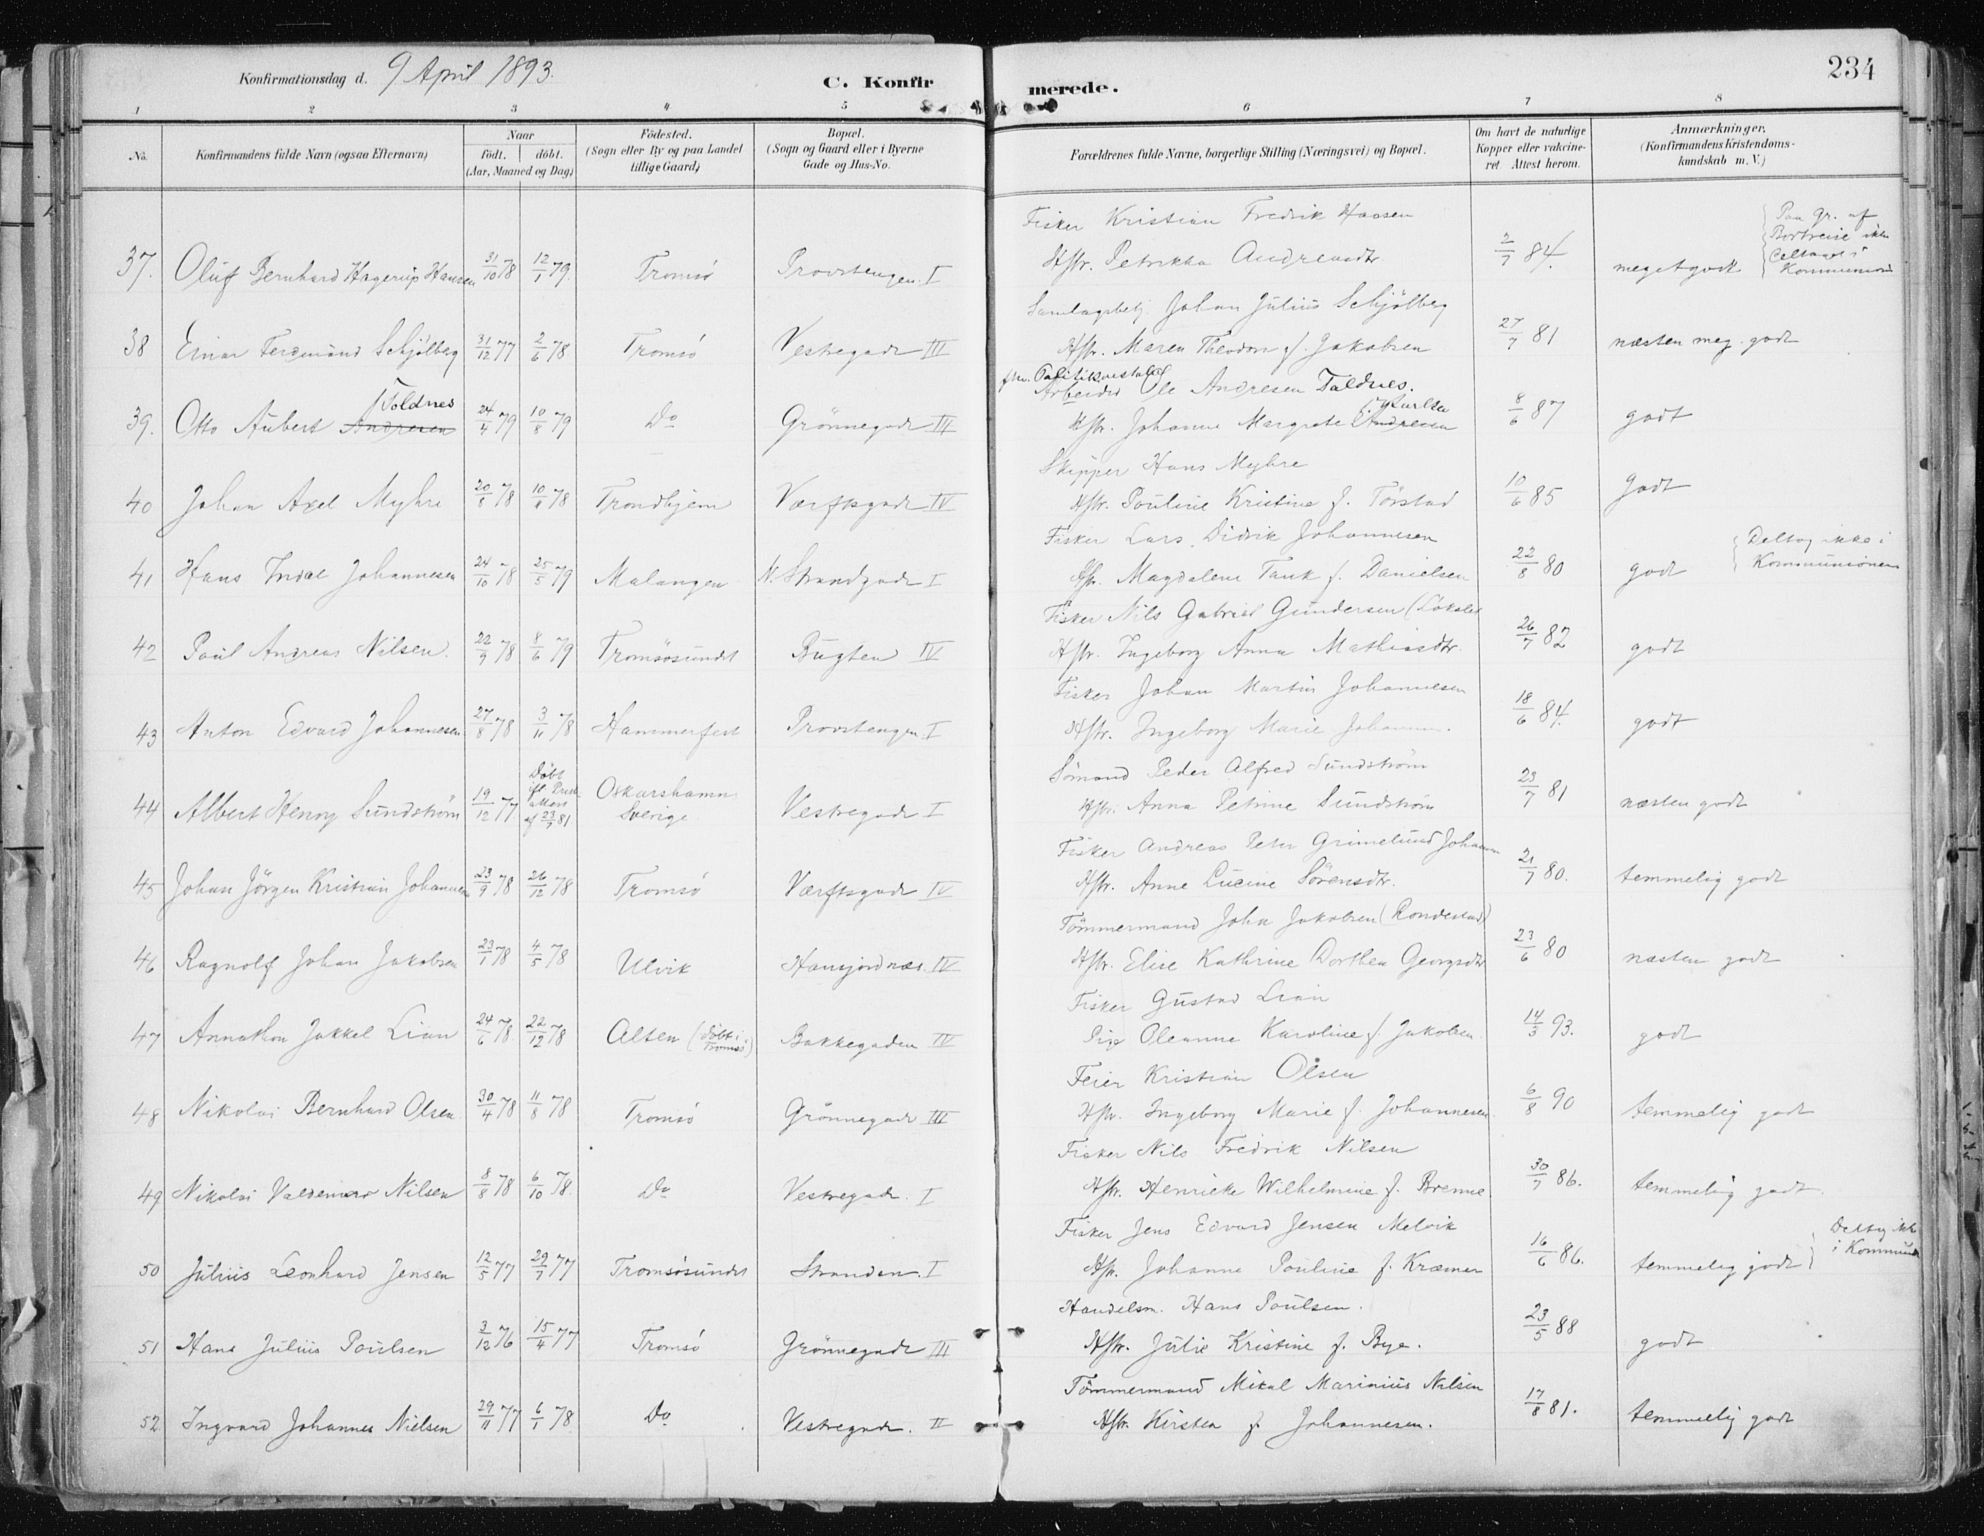 Konfirmationsdag d. 9 April 1893.
C. Konfirmerede.
234
1 2 3 4 5 6 7 8
No.
Konfirmandens fulde Navn (ogsaa Efternavn)
Naar
født. døbt.
(Aar, Maaned og Dag)
Fødested.
(Sogn eller By og paa Landet
tillige Gaard)
Bopæl.
(Sogn og Gaard eller i Byerne
Gade og Hus-No.
Forældrenes fulde Navne, borgerlige Stilling (Næringsvei) og Bopæl.
Om havt de naturlige
Kopper eller vakcine-
ret Attest herom.
Anmærkninger.
(Konfirmandens Kristendoms-
kundskab m. V.)
Fisker Kristian Fredrik Hansen
37. Oluf Bernhard Hagerup Hansen 31/10 78 12/1 79 Tromsö Provstengen I Hstr. Petrikka Andreasdtr 2/7 84. meget godt
Paa Gr. af
Bortreise ikke
i
Kommunionen
Samlagsbetj. Johan Julius Schjölberg
38 Einar Ferdinand Schjölberg 31/12 77 2/6 78 Tromsö Vestregade III Hstr. Maren Theodora f. Jakobsen 27/7 81 næsten meg. godt
fhv. Politikonstabel
Arbeider Ole Andresen Toldnes.
39. Otto Aubert Andresen Toldnes 24/4 79 10/8 79 Do Grönnegade III Hstr. Johanne Margrete Andresen f. Karlsen 8/6 87 godt
Skipper Hans Myhre
40 Johan Axel Myhre 20/5 78 10/9 78 Trondhjem Værftsgade IV Hstr. Pouline Kristine f. Törstad 10/6 85 Godt
Fisker Lars Didrik Johannesen
41 Hans Indal Johannesen 24/10 78 25/5 79 Malangen N. Strandgade I Hstr. Magdalene Tank f. Danielsen 22/8 80 godt
Deltog ikke i
Kommunionen
Fisker Nils Gabriel Gundersen (Löksled
42 Paul Andreas Nilsen. 22/9 78 8/6 79 Tromsösundet Bugten IV Hstr. Ingeborg Anna Mathiasdtr. 26/7 82 godt
Fisker Johan Martin Johannesen
43 Anton Edvard Johannesen 27/8 78 3/11 78 Hammerfest Provstengen I Hstr. Ingeborg Marie Johannes. 18/6 84. godt
Sömand Peder Alfred Sundström
44 Albert Henry Sundström 19/12 77 Döbt ifl. Præste Attest af 23/7 81 Oskarshamn Sverige Vestregade I Hstr. Anna Petrine Sundström 23/7 81 næsten godt
Fisker Andreas Peter Grimelund Johannes
45 Johan Jörgen Kristian Johannesen 23/9 78 26/12 78 Tromsö Værftsgade IV Hstr. Anne Lucine Sörensdtr. 21/7 80. temmelig godt
Tömmermand John Jakobsen (Rondestad)
46 Ragnolf Johan Jakobsen 23/1 78 4/5 78 Ulvik Hansjordnæs IV Hstr. Elise Kathrine Dorthea Georgsdtr 23/6 80 næsten godt
Fisker Gustav Lian
47 Annathon Jakkel Lian 24/6 78 22/12 78 Alten (döbt i Tromsö) Bakkegaden IV Pige Oleanne Karoline f. Jakobsen 14/3 93. godt
Feier Kristian Olsen
48 Nikolai Bernhard Olsen 30/4 78 11/8 78 Tromsö Grönnegade III Hstr. Ingeborg Marie f. Johannesen 6/8 90 temmelig godt
Fisker Nils Fredrik Nilsen
49 Nikolai Valdemar Nilsen 8/8 78 6/10 78. Do Vestregade. I Hstr. Henrikke Wilhelmine f. Brenne 30/7 86. temmelig godt
Fisker Jens Edvard Jensen Melvik
50 Julius Leonhard Jensen 12/5 77 29/7 77 Tromsösundet Stranden. I Hstr. Johanna Pouline f. Kræmer 16/6 86. temmelig godt
Deltog ikke
i Kommunion
Handelsm. Hans Poulsen.
51 Hans Julius Poulsen 3/12 76 15/4 77 Tromsö Grönnegade III Hstr. Julie Kristine f. Bye. 23/5 88 godt
Tömmermand Mikal Marinius Nilsen
52 Ingvard Johannes Nielsen 29/11 77 6/1 78 Do Vestregade. II Hstr. Kirsten f. Johannesen. 17/8 81. temmelig godt